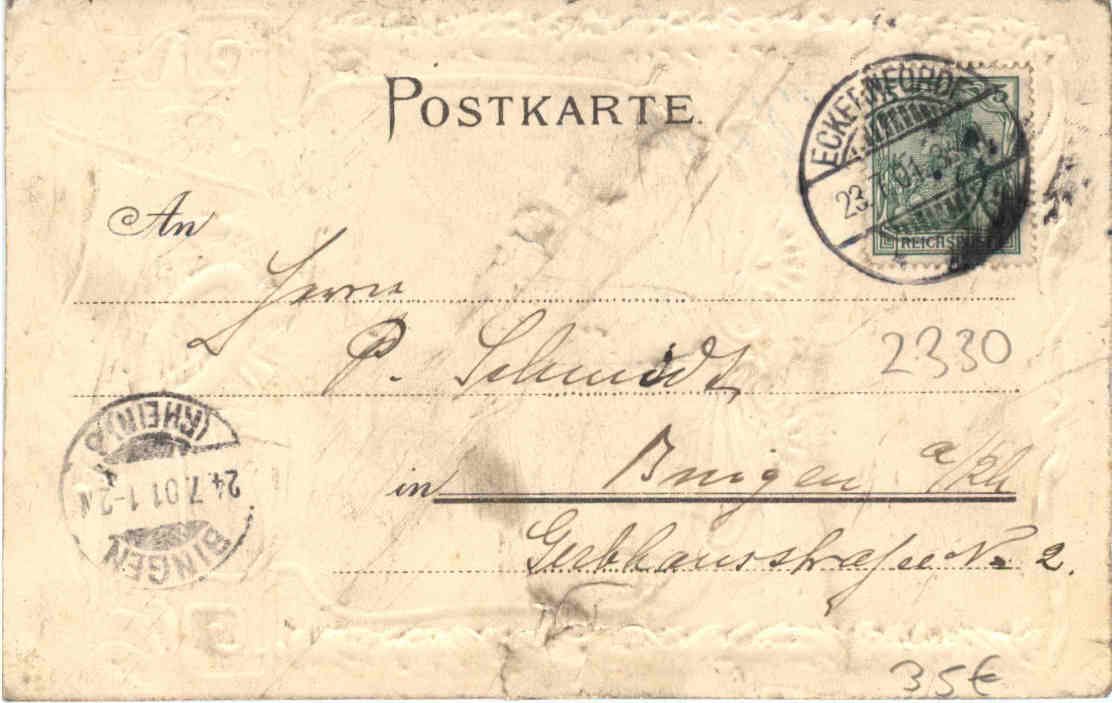 POSTKARTE.
5
REICHSPOST
23.7.01
An
Herrn
P. Schmidt
2330
in Bingen a/Rh
Gerbhausstraße No 2.
BINGEN
24.7.01 1-2N
(RHEIN)
35€